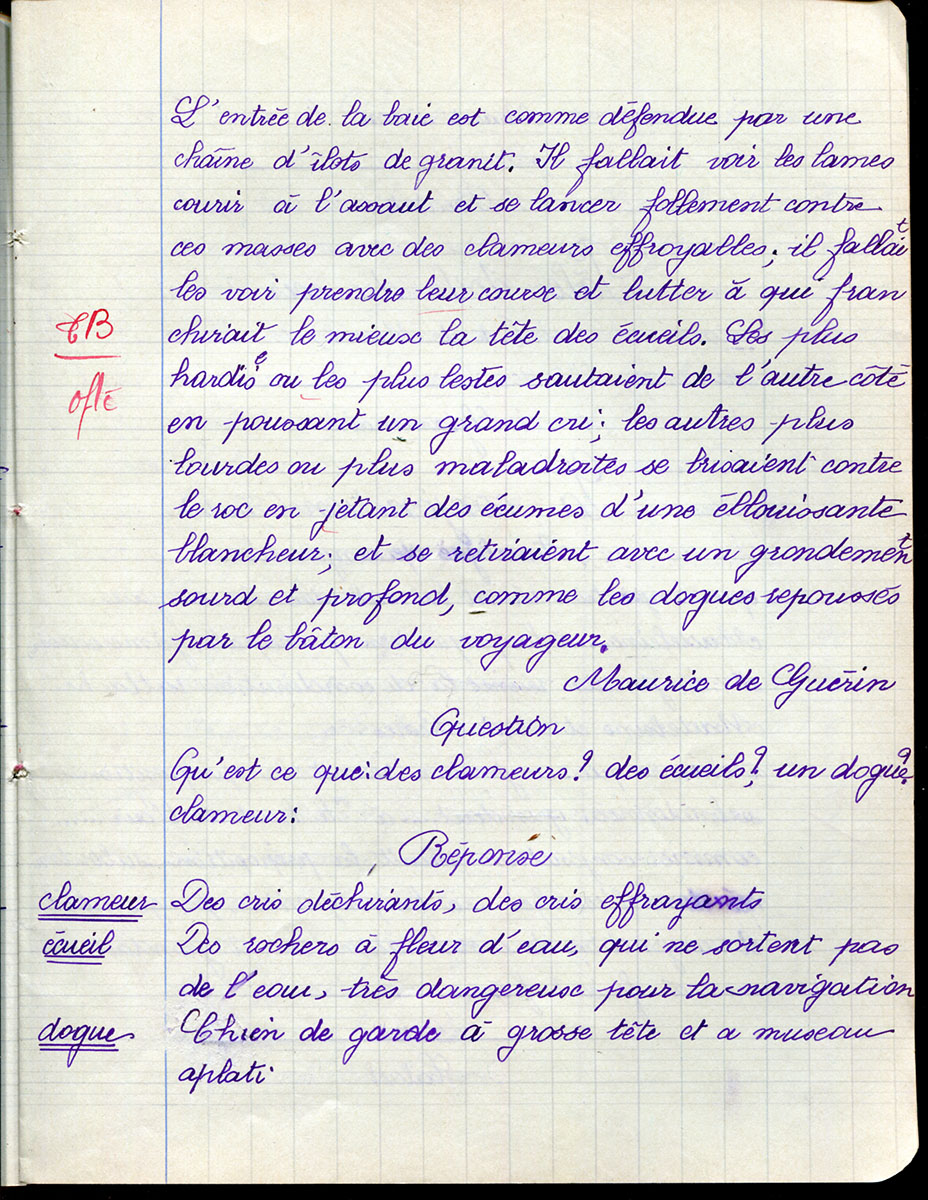 L'entrée de la baie est comme défendue par une
chaîne d'îlots de granit. Il fallait voir les lames
courir à l'assaut et se lancer follement contre
ces masses avec des clameurs effroyables; il fallait
les voir prendre leur course et lutter à qui fran
chirait le mieux la tête des écueils. Les plus
TB
hardies ou les plus lestes sautaient de l'autre côté
en poussant un grand cri; les autres plus
lourdes ou plus maladroites se brisaient contre
le roc en jetant des écumes d'une éblouissante
blancheur; et se retiraient avec un grondement
sourd et profond, comme les dogues repoussés
par le bâton du voyageur.
Maurice de Guérin
Question
Qu'est ce que: des clameurs? des écueils? un dogue?
clameur:
Réponse
clameur Des cris déchirants, des cris effrayants
écueil Des rochers à fleur d'eau, qui ne sortent pas
de l'eau, très dangereux pour la navigation
dogue Chien de garde à grosse tête et a museau
aplati